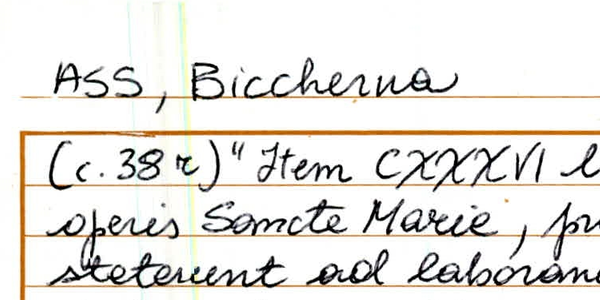 ASS, Biccherna
(c. 38 r) "Item CXXXVI l
operis Sancte Marie, pr
steterunt ad laboran